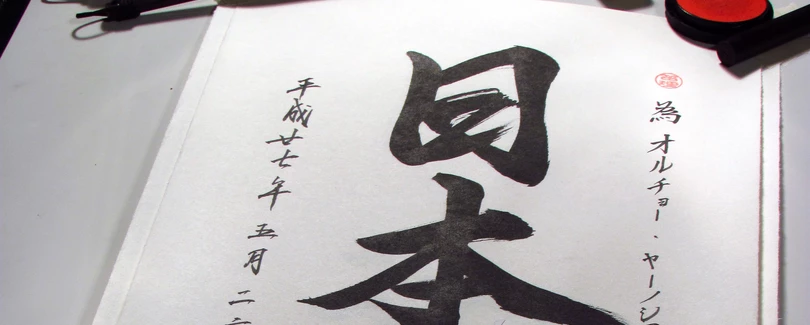 為 オルチョー・ヤーノシ
日本
平成廿七年 五月 二